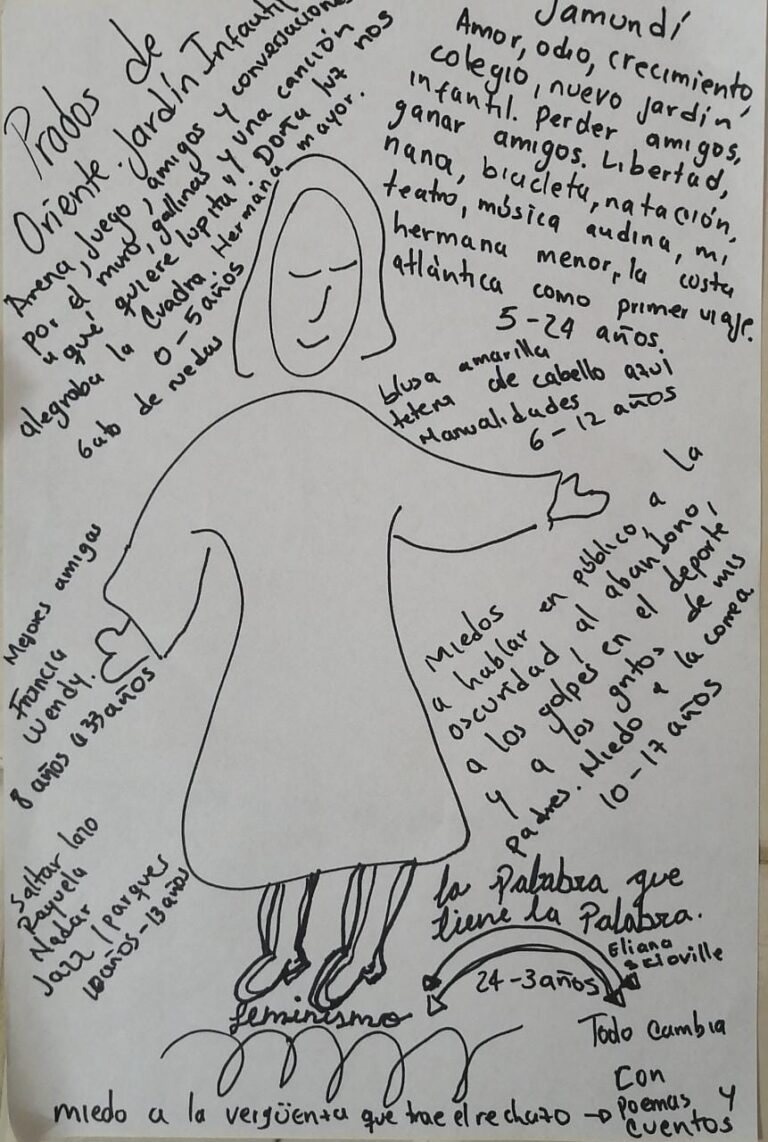 Prados de
Oriente. Jardín Infantil
Arena, Juego, amigos y conversaciones
por el muro, gallinas y una canción
"a qué quiere lupita" Doña luz nos
alegraba la cuadra. Hermana mayor.
0-5 años
Gato de ruedas
Jamundí
Amor, odio, crecimiento,
colegio, nuevo jardín
infantil. Perder amigos,
ganar amigos. Libertad,
nana, bicicleta, natación,
teatro, música andina, mi
hermana menor, la costa
atlántica como primer viaje.
5-24 años.
blusa amarilla
tetera de cabello azul
Manualidades
6-12 años
Mejores amigas
Francia
Wendy.
8 años a 33 años
Miedos
a hablar en público, a la
oscuridad, al abandono,
a los golpes en el deporte
y a los gritos de mis
Padres. Miedo a la correa
10-17 años
Saltar lazo
Rayuela
Nadar
Jazz / parques
10 años-13 años
la Palabra que
tiene la Palabra.
Eliana
24-3 años
feminismo
Todo cambia
Con
poemas y
cuentos
miedo a la vergüenza que trae el rechazo →